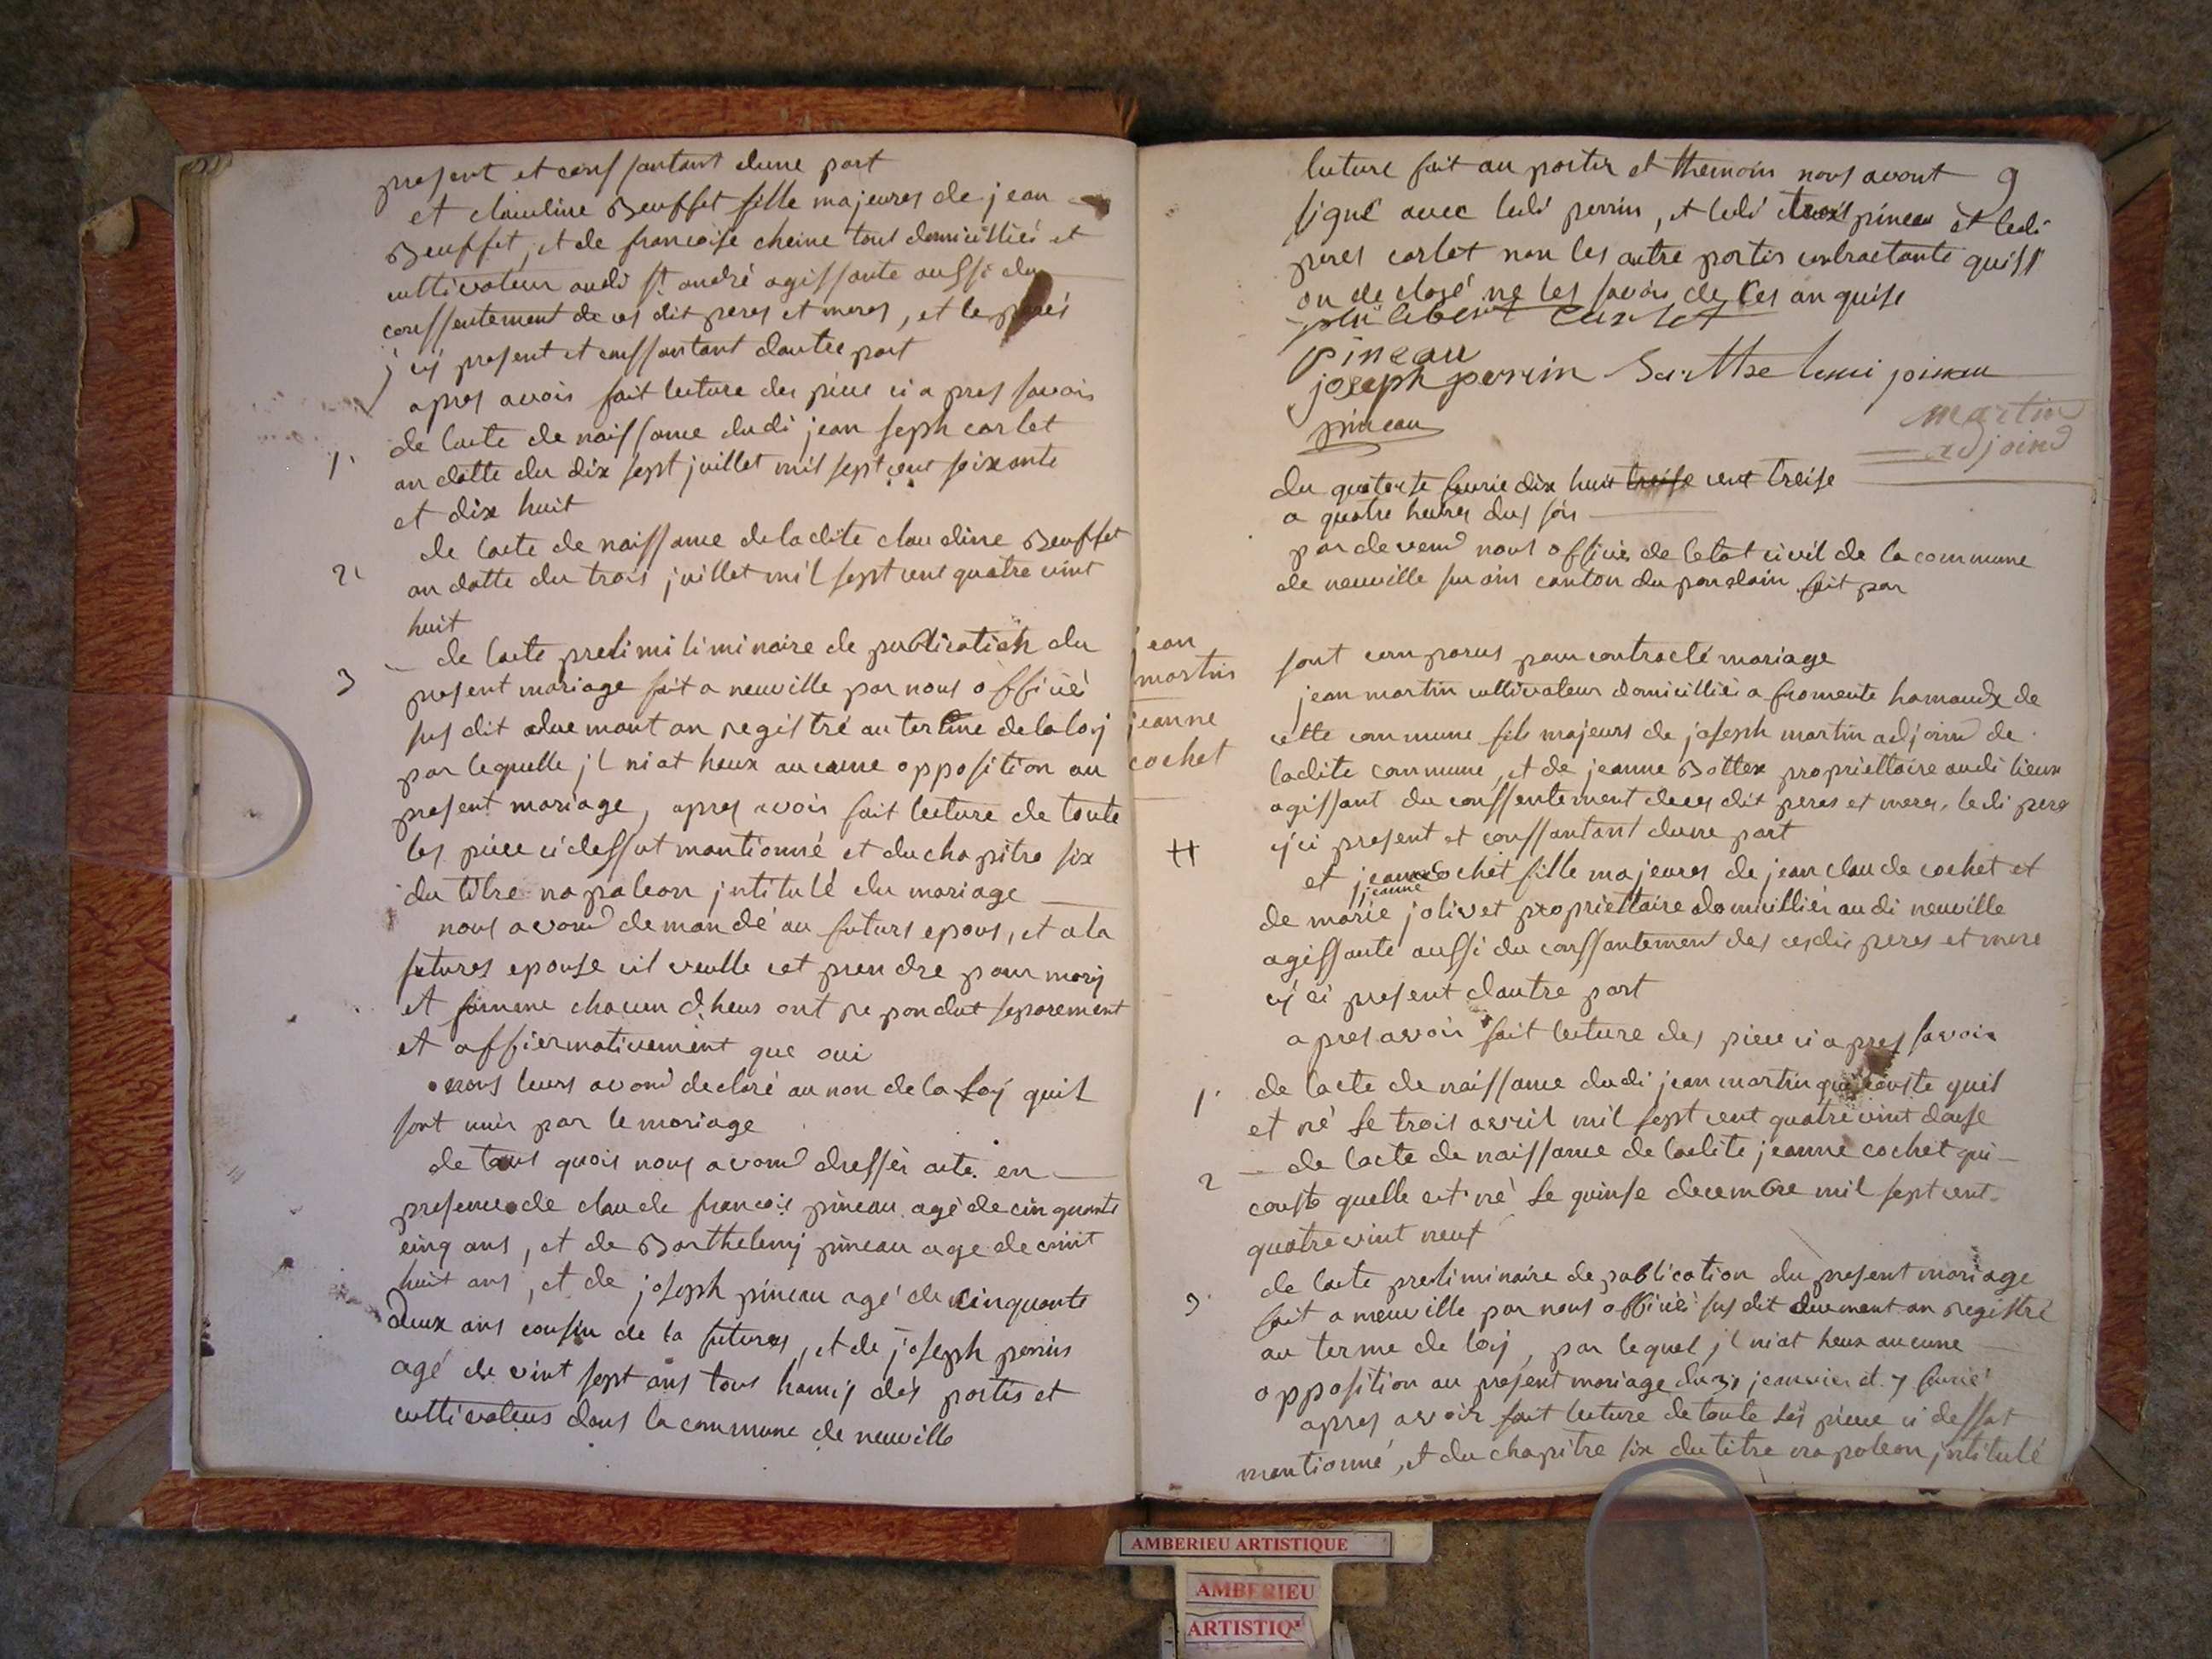 present et conssantant dune part
et claudine Beuffet fille majeures de jean
Beuffet, et de francoise cheine tous domicilliés et
cultivateur audi st andré agissante aussi du
conssentement de ces dit peres et meres, et le perés
j cij present et conssantant dautre part
apres avoir fait lecture des piece ci a pres savoir
1. de lacte de naissance dudi jean seph carlet
an datte du dix sept juillet mil sept cent soixante
et dix huit
de lacte de naissance de ladite claudine Beuffet
2. an datte du trois juillet mil sept cent quatre vint
huit
de lacte prelimiliminaire de publication du
3 present mariage fait a neuville par nous officiéi
sus dit duemant an registré au terme de la loij
par lequelle jl niat heux aucune opposition au
present mariage, apres avoir fait lecture de toute
les piece ci dessut mantionné et du chapitre six
du titre napaleon jntitulé du mariage
nous avond demandé au futurs epous, et a la
futures epouse cil veulle cet prendre pour marij
et famme chacun dheus ont repondut separement
et affiermativement que oui
nous leurs avond declaré au non de la Loij quil
sont unir par le mariage
de tous quois nous avond dresséi acte en
presence de claude francois pineau agé de cinquante
cinq ans, et de Barthelemij pineau age de vint
huit ans, et de joseph pineau agé de cinquante
deux ans cousin de la futures, et de joseph perrin
agé de vint sept ans tous hamis dés partis et
cultivateurs dans la commune de neuville
lecture fait au partis et themoin nous avont 9
signé avec ledi perrin, et ledi trois pineau et ledi
peres carlet non les autre partis contractante quil
on de claré ne les savoir de ces an quise
philibert Carlet
pineau
joseph perrin Barthelemi pineau
pineau
martin
adjoind
du quatorse feurie dix huit treise cent treise
a quatre heures dus soir
par devend nous officié de letat civil de la commune
de neuville sur ains canton du pondain fait par
jean
martin
jeanne
cochet
sont comparus pour contracté mariage
jean martin cultivateur domicilliéi a fromente hamaudx de
cette commune fils majeurs de joseph martin adjoind de
ladite commune, et de jeanne Bottex propriettaire audi lieux
agissant du conssentement de ces dit peres et meres, ledi peres
cj ci present et conssantant dune part
et jeanne cochet fille majeures de jean claude cochet et
jeanne
de marie jolivet propriettaire domicilliér audi neuville
agissante aussi du conssantement des cesdit peres et mere
cj ci present dautre part
apres avoir fait lecture des piece ci apres savoir
1. de lacte de naissance dudi jean martin qui conste quil
et né Le trois avril mil sept cent quatre vint douse
2 de lacte de naissance de ladite jeanne cochet qui
conste quelle est né Le quinse decembre mil sept cent
quatre vint neuf
de lacte preliminaire de publication du present mariage
3. fait a neuville par nous officiéi sus dit duemant an registré
au terme de loij, par lequel jl niat heux aucune
opposition au present mariage du 31 jeanvier et 7 feurié
apres avoir fait lecture de toute les piece ci dessut
mantionné, et du chapitre six du titre napoleon jntitulé
AMBERIEU ARTISTIQUE
AMBERIEU
ARTISTIQ